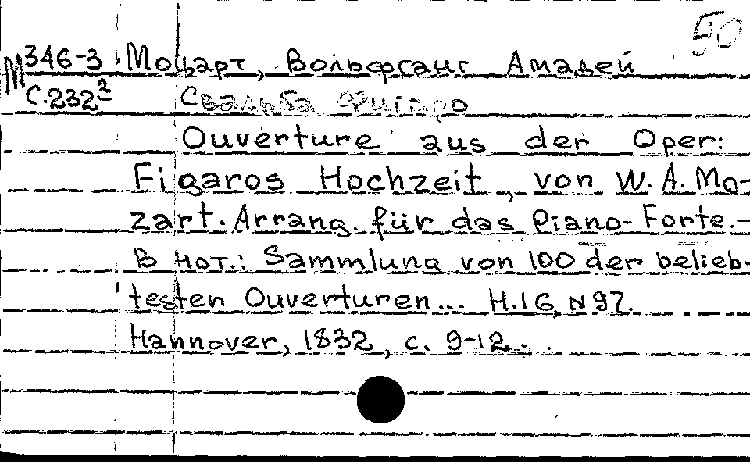 50
М 346-3 Моцарт, Вольфганг Амадей
С.232² Свадьба Фигаро
Ouverture aus der Oper:
Figaros Hochzeit, von W. A. Mo-
zart. Arrang. für das Piano-Forte.-
В нот.: Sammlung von 100 der belieb-
testen Ouverturen... H.16, N97.
Hannover, 1832, с. 9-12.